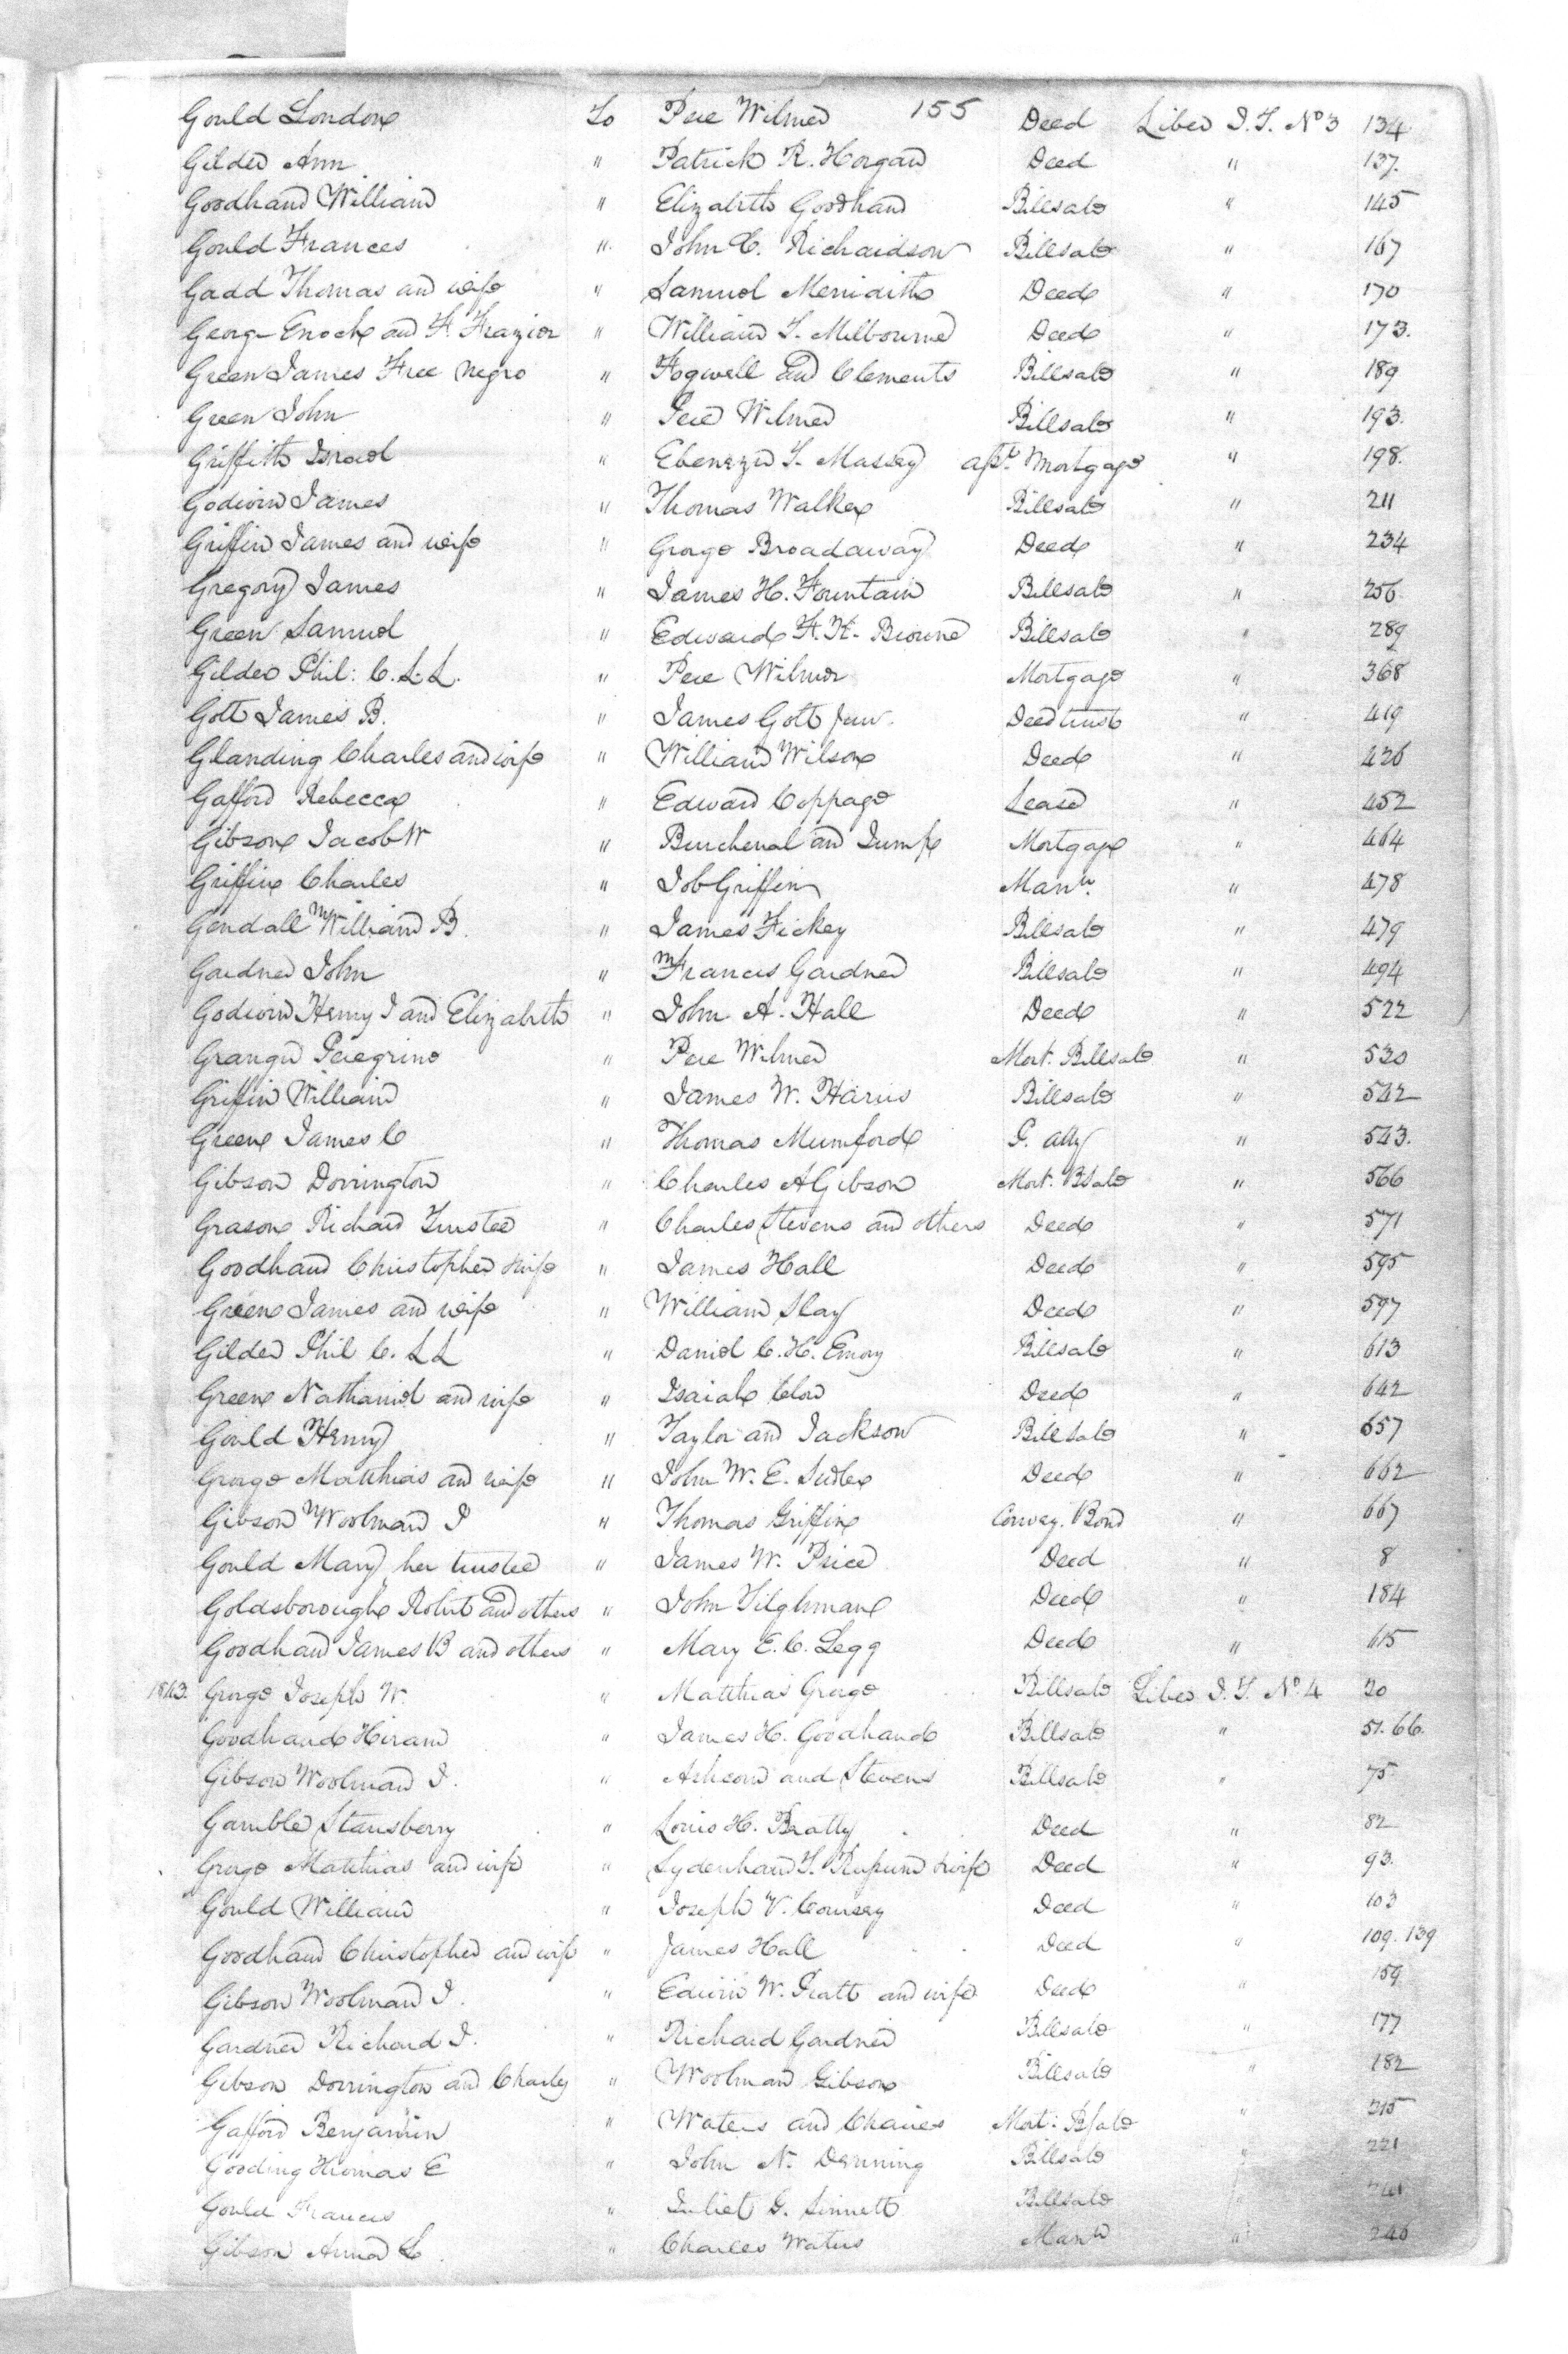 155
Gould London To Pere Wilmer Deed Liber J.T. No 3 134
Gilder Ann " Patrick R. Horgan Deed " 137.
Goodhand William " Elizabeth Goodhand Billsale " 145
Gould Frances " John C. Richardson Billsale " 167
Gadd Thomas and wife " Samuel Merridith Deed " 170
George Enoch and F. Frazier " William T. Milbourne Deed " 173.
Green James Free Negro " Fogwell and Clements Billsale " 189
Green John " Pere Wilmer Billsale " 193.
Griffith Israel " Ebenezer T. Massey asst. Mortgage " 198.
Godwin James " Thomas Walker Billsale " 211
Griffin James and wife " George Broadaway Deed " 234
Gregory James " James H. Fountain Billsale " 256
Green Samuel " Edward F. K. Browne Billsale " 289
Gilder Phil: C. L. L. " Pere Wilmer Mortgage " 368
Gott James B. " James Gott Junr. Deed trust " 419
Glanding Charles and wife " William Wilson Deed " 426
Gafford Rebecca " Edward Coppage Lease " 452
Gibson Jacob W " Burchenal and Jump Mortgage " 464
Griffin Charles " Job Griffin Mann. " 478
Gendall William B. " James Fickey Billsale " 479
Gardner John " Francis Gardner Billsale " 494
Godwin Henry J and Elizabeth " John A. Hall Deed " 522
Granger Peregrine " Pere Wilmer Mort. Billsale " 530
Griffin William " James W. Harris Billsale " 542
Green James C " Thomas Mumford P. Atty " 543.
Gibson Dorrington " Charles A Gibson Mort. BSale " 566
Grason Richard Trustee " Charles Stevens and others Deed " 571
Goodhand Christopher & wife " James Hall Deed " 595
Green James and wife " William Slay Deed " 597
Gilder Phil C. L L " Daniel C. H. Emory Billsale " 613
Green Nathaniel and wife " Isaiah Clow Deed " 642
Gould Henry " Taylor and Jackson Billsale " 657
George Matthias and wife " John W. E. Sudler Deed " 662
Gibson Woolman J " Thomas Griffin Convey. Bond " 667
Gould Mary her trustee " James W. Price Deed " 8
Goldsborough Robert and others " John Tilghman Deed " 184
Goodhand James B and others " Mary E. C. Legg Deed " 615
1843. George Joseph W. " Matthias George Billsale Liber J. T. No. 4 20
Goodhand Hiram " James H. Goodhand Billsale " 51. 66.
Gibson Woolman J. " Ashcom and Stevens Billsale " 75
Gamble Stansberry " Louis H. Beatty Deed " 82
George Matthias and wife " Sydenham T. Russum & wife Deed " 93.
Gould William " Joseph V. Comsey Deed " 103
Goodhand Christopher and wife " James Hall Deed " 109. 139
Gibson Woolman J. " Edwin W. Pratt and wife Deed " 159
Gardner Richard J. " Richard Gardner Billsale " 177
Gibson Dorrington and Charles " Woolman Gibson Billsale " 182
Gafford Benjamin " Waters and Chaires Mort: BSale " 215
Gooding Thomas E " John N. Denning Billsale " 221
Gould Frances " Juliet G. Sinnett Billsale "
Gibson Anna L. " Charles Waters Mann " 246